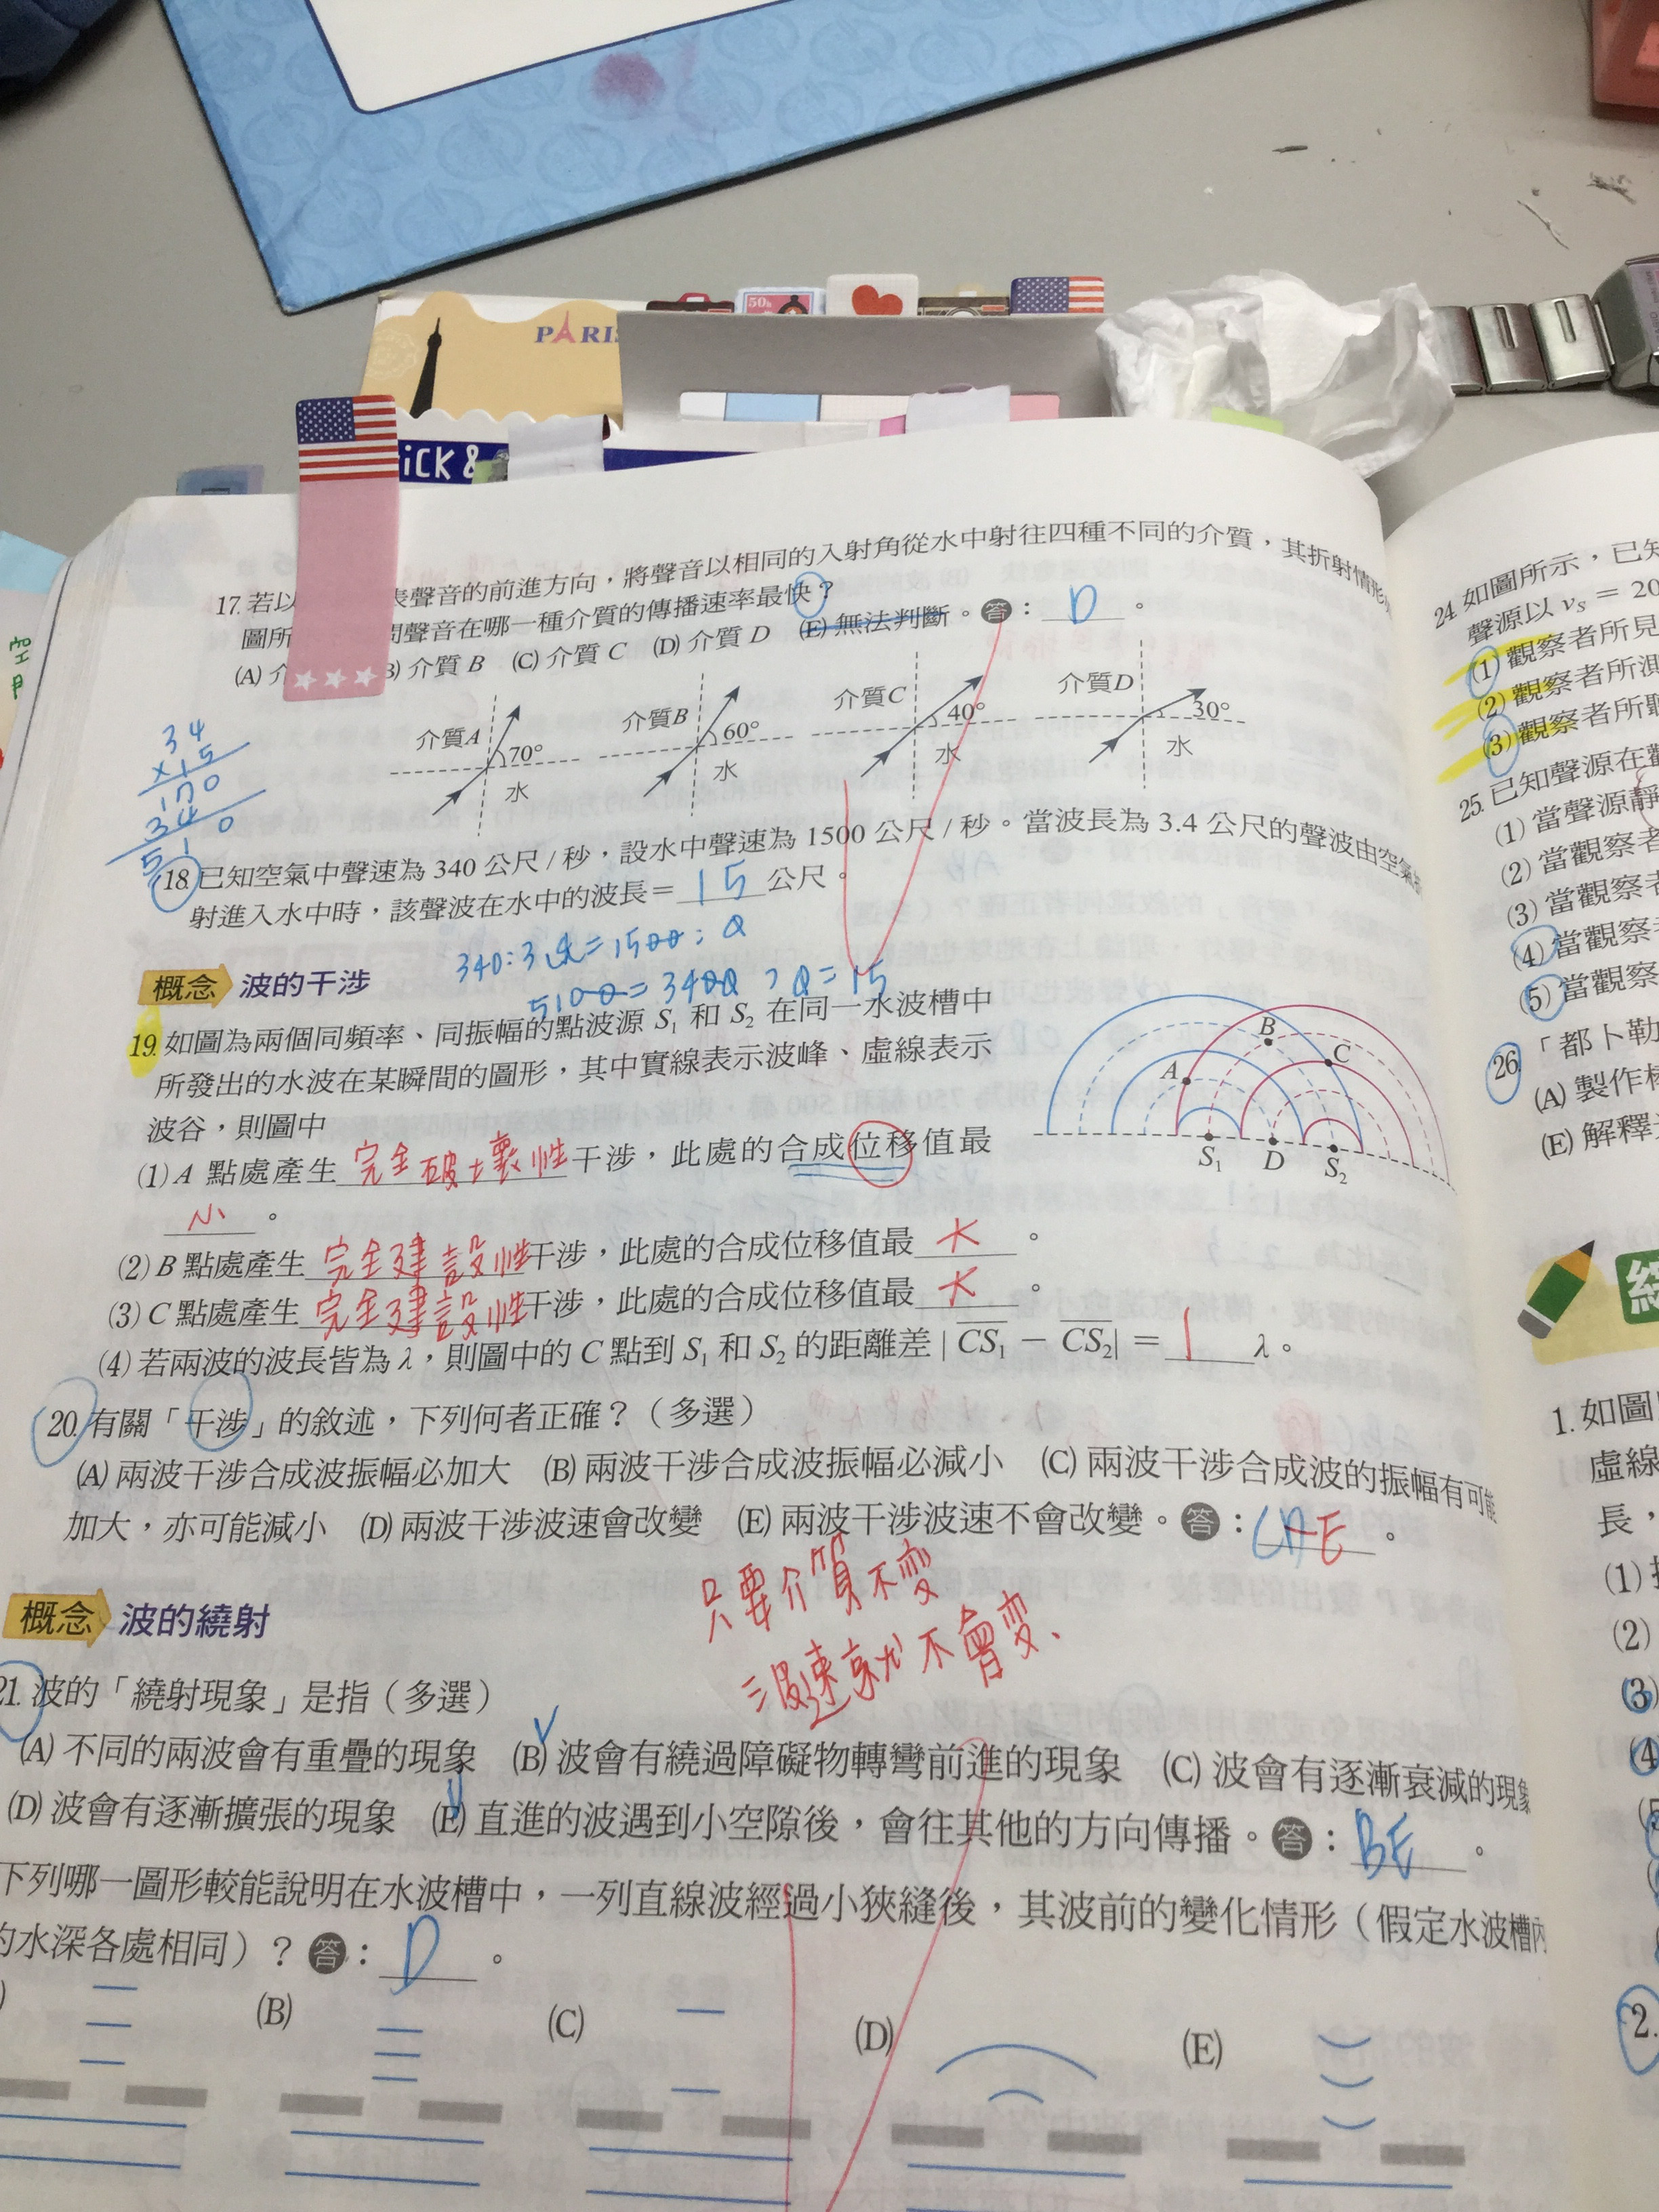 50
PARIS
ICK &
17. 若以 表聲音的前進方向，將聲音以相同的入射角從水中射往四種不同的介質，其折射情形
圖所 問聲音在哪一種介質的傳播速率最快？
(A) 介 B) 介質 B (C) 介質 C (D) 介質 D (E) 無法判斷。答：D。
介質A 70° 水 介質B 60° 水 介質C 40° 水 介質D 30° 水
34
×15
170
34
510
18. 已知空氣中聲速為 340 公尺/秒，設水中聲速為 1500 公尺/秒。當波長為 3.4 公尺的聲波由空氣
射進入水中時，該聲波在水中的波長＝15公尺。
概念 波的干涉
19. 如圖為兩個同頻率、同振幅的點波源 S₁ 和 S₂ 在同一水波槽中
所發出的水波在某瞬間的圖形，其中實線表示波峰、虛線表示
波谷，則圖中
A B C S₁ D S₂
(1) A 點處產生完全破壞性干涉，此處的合成位移值最
小。
(2) B 點處產生完全建設性干涉，此處的合成位移值最大。
(3) C 點處產生完全建設性干涉，此處的合成位移值最大。
(4) 若兩波的波長皆為 λ，則圖中的 C 點到 S₁ 和 S₂ 的距離差 | CS₁ − CS₂| ＝ 1 λ。
20. 有關「干涉」的敘述，下列何者正確？（多選）
(A) 兩波干涉合成波振幅必加大 (B) 兩波干涉合成波振幅必減小 (C) 兩波干涉合成波的振幅有可能
加大，亦可能減小 (D) 兩波干涉波速會改變 (E) 兩波干涉波速不會改變。答：CE。
只要介質不变
波速就不會变、
概念 波的繞射
21. 波的「繞射現象」是指（多選）
(A) 不同的兩波會有重疊的現象 (B) 波會有繞過障礙物轉彎前進的現象 (C) 波會有逐漸衰減的現象
(D) 波會有逐漸擴張的現象 (E) 直進的波遇到小空隙後，會往其他的方向傳播。答：BE。
下列哪一圖形較能說明在水波槽中，一列直線波經過小狹縫後，其波前的變化情形（假定水波槽內
的水深各處相同）？答：D。
(B) (C) (D) (E)
24. 如圖所示，已知
聲源以 vₛ = 20
(1) 觀察者所見
(2) 觀察者所測
(3) 觀察者所聽
25. 已知聲源在觀
(1) 當聲源靜
(2) 當觀察者
(3) 當觀察者
(4) 當觀察者
(5) 當觀察
26. 「都卜勒
(A) 製作
(E) 解釋
1. 如圖
虛線
長，
(1)
(2)
(3)
(4
2.